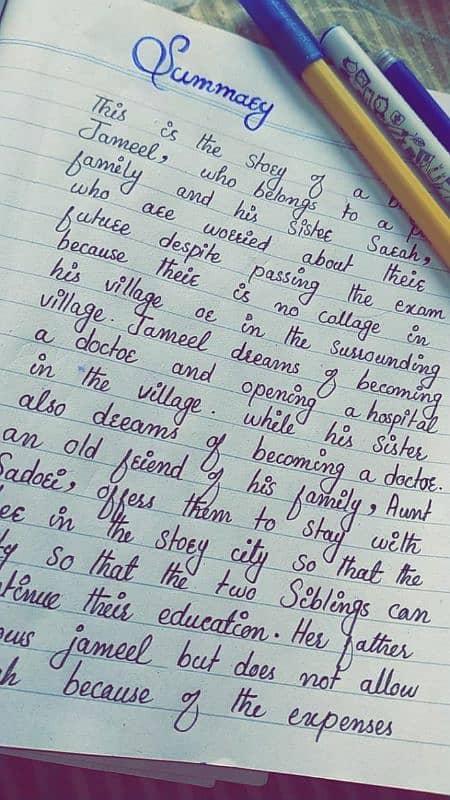 Summary
This is the story of a
Jameel, who belongs to a
family and his sister Sarah,
who are worried about their
future despite passing the exam
because their is no collage in
his village or in the surrounding
village. Jameel dreams of becoming
a doctor and opening a hospital
in the village. while his sister
also dreams of becoming a doctor.
an old friend of his family, Aunt
Sadori, offers them to stay with
in the story city so that the
so that the two Siblings can
their education. Her father
jameel but does not allow
because of the expenses